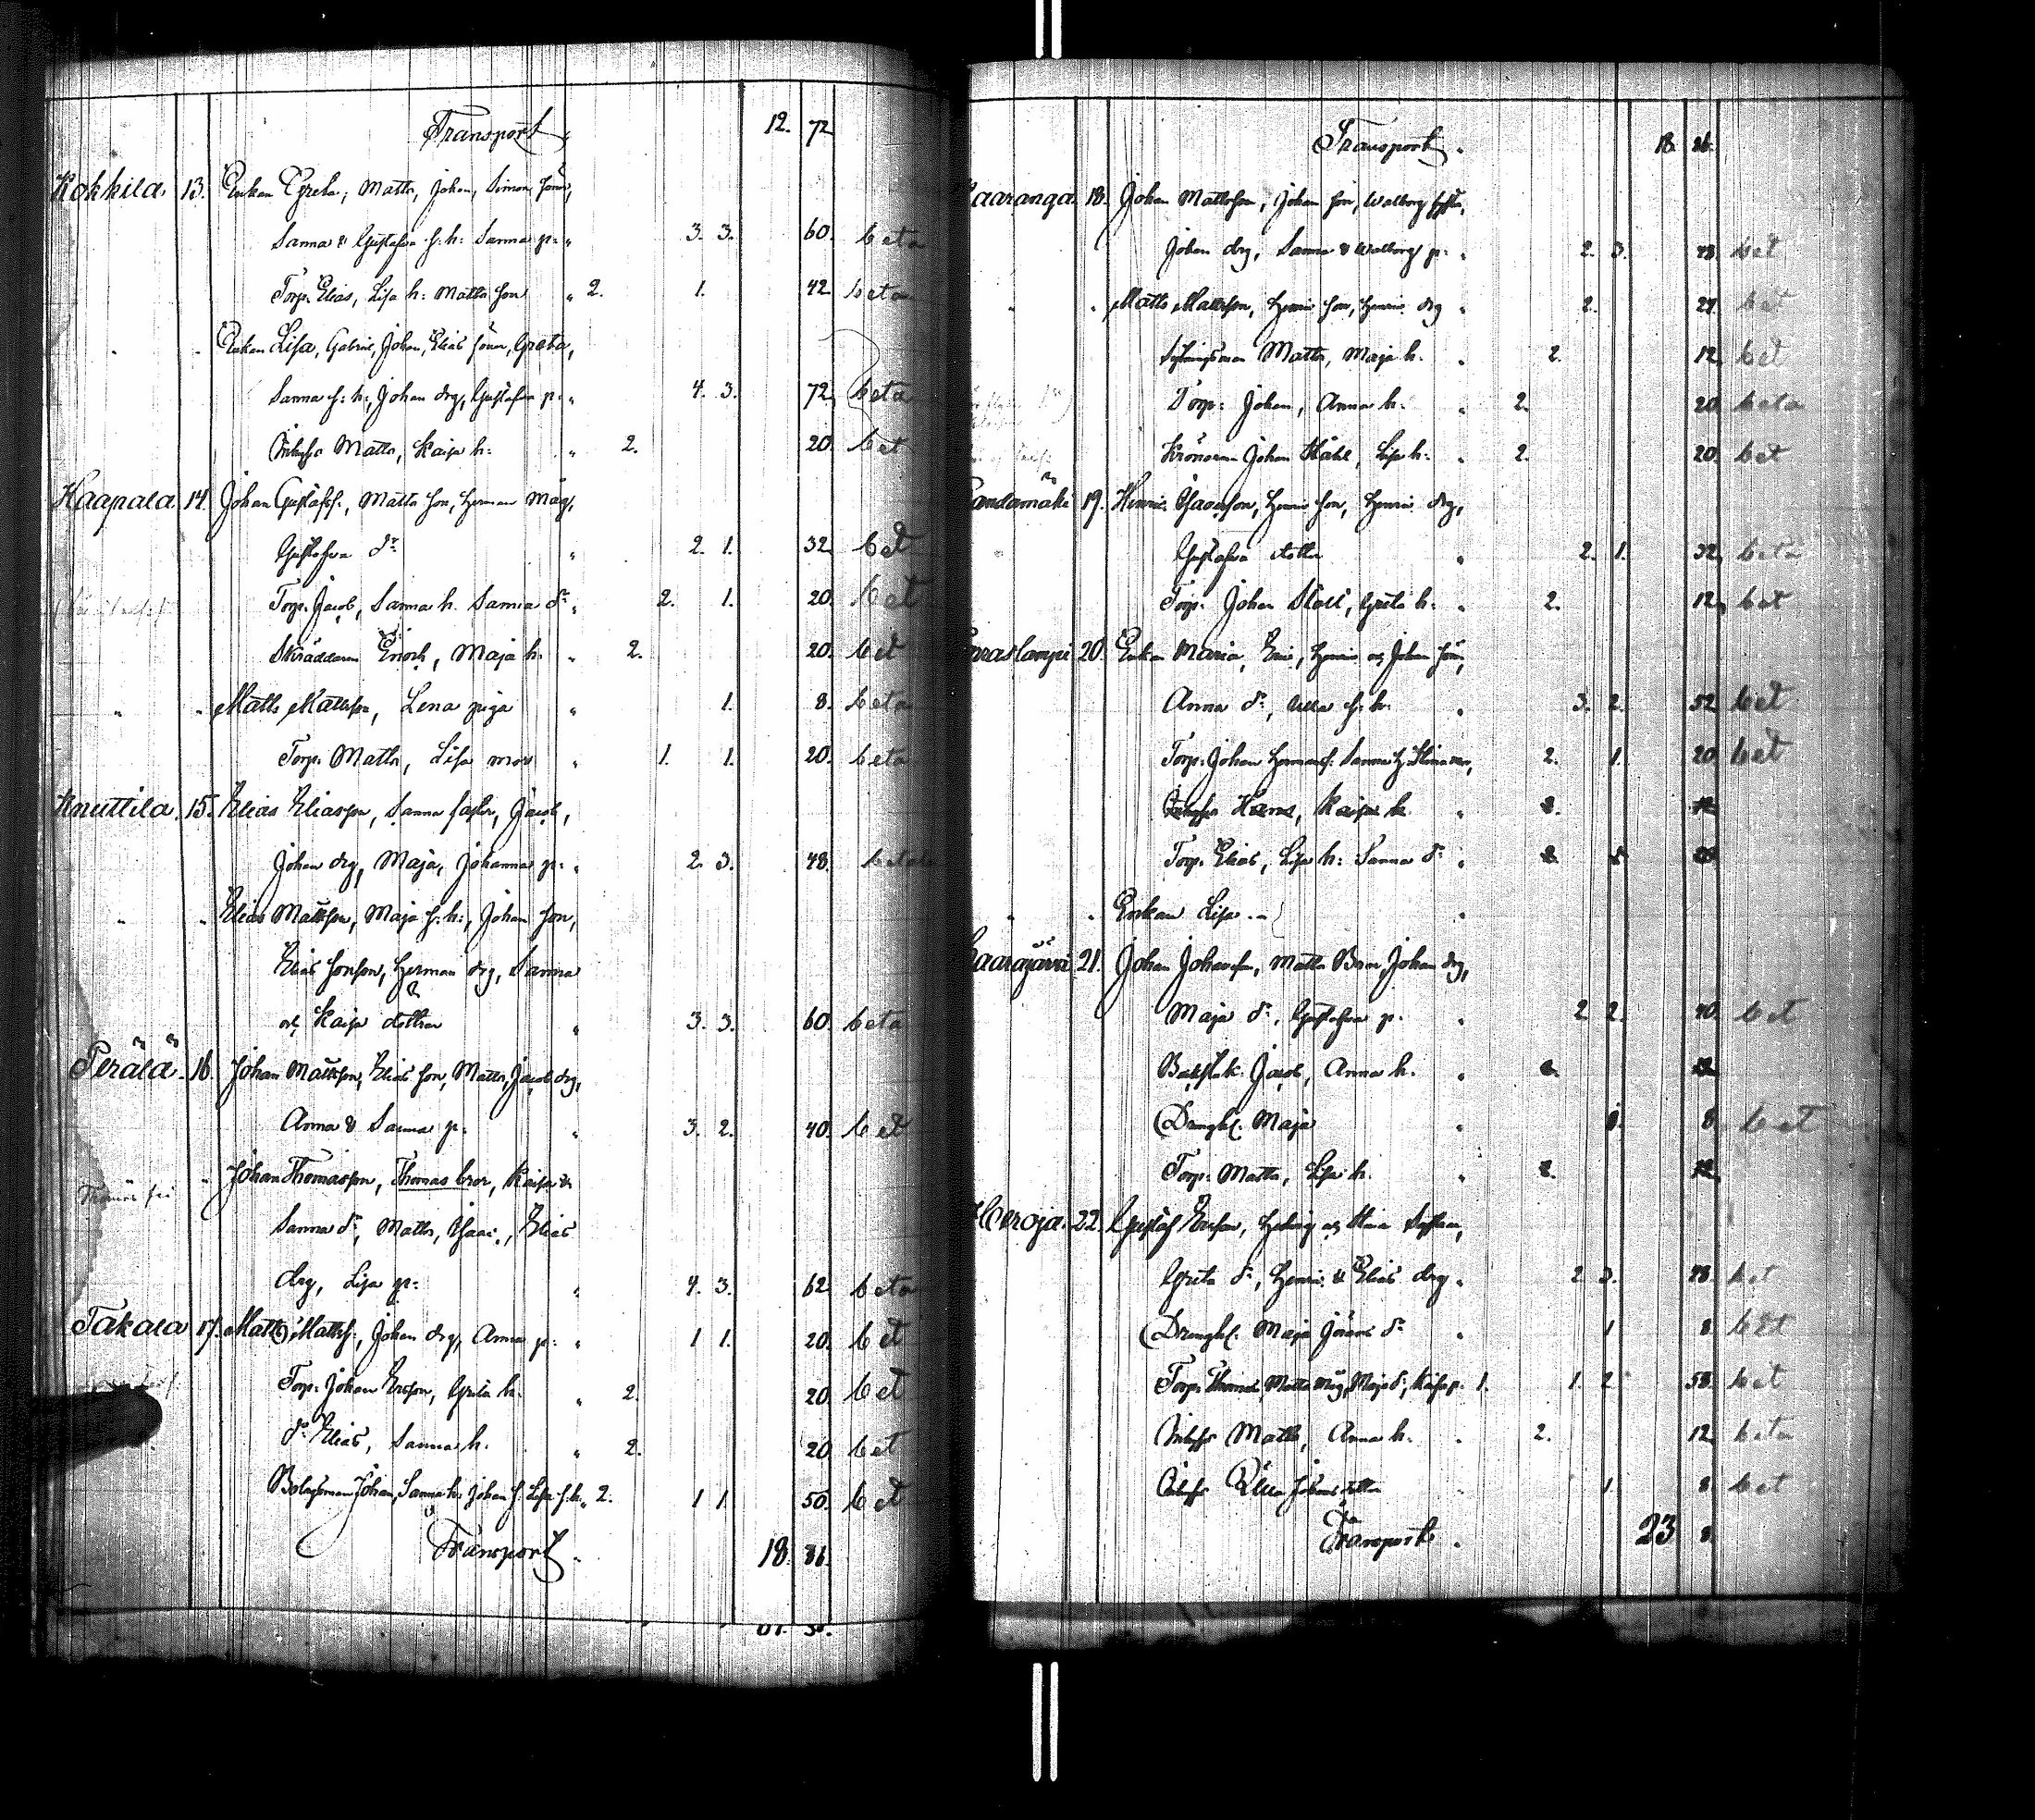 Transport „ 12. 72
Kokkila. 13. Enkan Greta, Matts, Johan, Simon söner,
Sanna & Gustafva s. h: Sanna p: „ 3. 3. 60. beta
Torp. Elias, Lisa h: Matts son „ 2. 1. 42 beta
„ „ Enkan Lisa, Gabriel, Johan, Elias söner, Greta,
Sanna s: h:, Johan drg, Gustafva p: „ 4. 3. 72. beta
Inhyss Matts, Kaisa h: „ 2. 20. bet
Haapala 14. Johan Gustafss:, Matts son, Herman Måg,
Gustafva dr „ 2. 1. 32 bet
Torp. Jacob, Sanna h. Sanna dr „ 2. 1. 20. bet
Skräddaren Enoch, Maja h. „ 2. 20. bet
„ „ Matts Mattsson, Lena piga „ 1. 8. beta
Torp. Matts, Lisa mor „ 1. 1. 20. beta
Knuttila. 15. Elias Eliasson, Sanna faster, Jacob,
Johan drg, Maja, Johanna p: „ 2. 3. 48. beta
„ „ Elias Mattsson, Maja s: h:, Johan son,
Elias sonson, Herman drg, Sanna
och Kaisa döttrar „ 3. 3. 60. beta
Perälä. 16. Johan Mattsson, Elias son, Matts, Jacob drg,
Anna & Sanna p. „ 3. 2. 40. bet
„ Johan Thomasson, Thomas bror, Kaisa &
Sanna dr, Matts, Isaac, Elias
drg, Lisa p: „ 4. 3. 62 beta
Takala 17. Matts Mattss:, Johan drg, Anna p: „ 1 1. 20. bet
Torp. Johan Ersson, Greta h. „ 2. 20 bet
dr Elias, Sanna h. „ 2. 20 bet
Bolagsman Johan, Sanna h. Johan s. Lisa s.h. „ 2. 1 1. 50. bet
Transport „ 18. 86.
Transport „ 18. 86.
aaranga. 18. Johan Mattsson, Johan son, Walborg syster,
Johan drg, Sanna & Walborg p: „ 2. 3. 48. bet
„ „ Matts Mattsson, Henric son, Henric drg „ 2. 24 bet
Sytningsman Matts, Maja h. „ 2. 12. bet
Torp: Johan, Anna h: „ 2. 20. beta
Kronoman Johan Ståhl, Lisa h: „ 2. 20. bet
andamäki 19. Henric Isacsson, Henric son, Henric drg,
Gustafva dotter „ 2. 1. 32 beta
Torp: Johan Stoll, Greta h: „ 2. 12. bet
raslampi 20. Enkan Maria, Eric, Henric och Johan söner,
Anna dr, Ulla s. h. „ 3. 2. 52 bet
Torp: Johan Hermanss: Sanna h. Stina mor, 2. 1. 20 bet
Inhyss Hans, Kaisa h. „ 2. 12
Torp: Elias, Lisa h: Sanna dr „ 2. 1. 20
„ „ Enkan Lisa „ „
aarajärvi 21. Johan Johansson, Matts Bror, Johan drg,
Maja dr, Gustafva p. „ 2 2. 40. bet
Backstuk: Jacob, Anna h. „ 2. 12
Drengh. Maja „ 1. 8 bet
Torp: Matts, Lisa h. „ 2. 12
Heroja. 22. Gustaf Ersson, Hedvig och Stina Systrar,
Greta dr, Henric & Elias drg „ 2 3. 48. bet
Drengh. Maja Johans dr „ 1 8. bet
Torp: Thomas, Matts Måg, Maja dr, Kaisa p. 1. 1. 2 58. bet
Inhyss Matts, Anna h. „ 2. 12. beta
Inhyss Ulla Johans dotter 1. 8 bet
Transport „ 23 8.